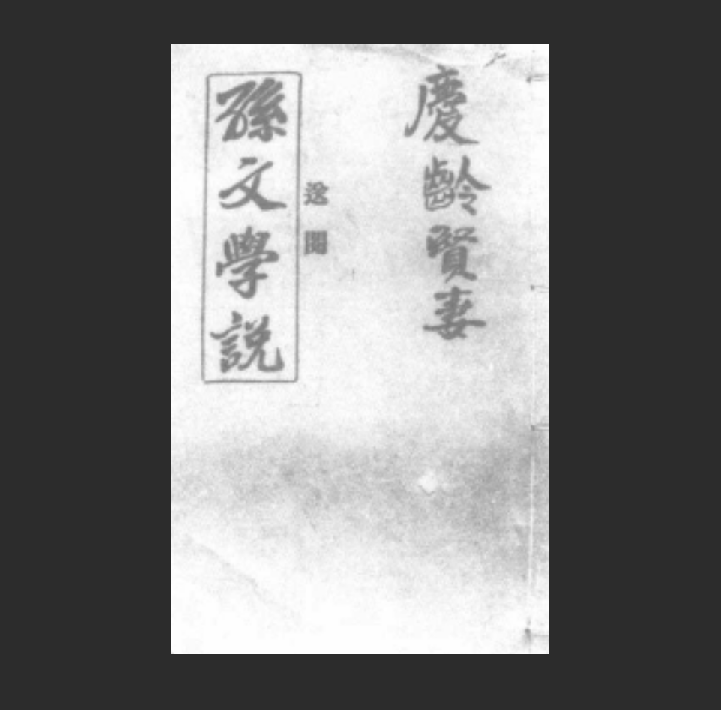 慶齡賢妻
孫文學說